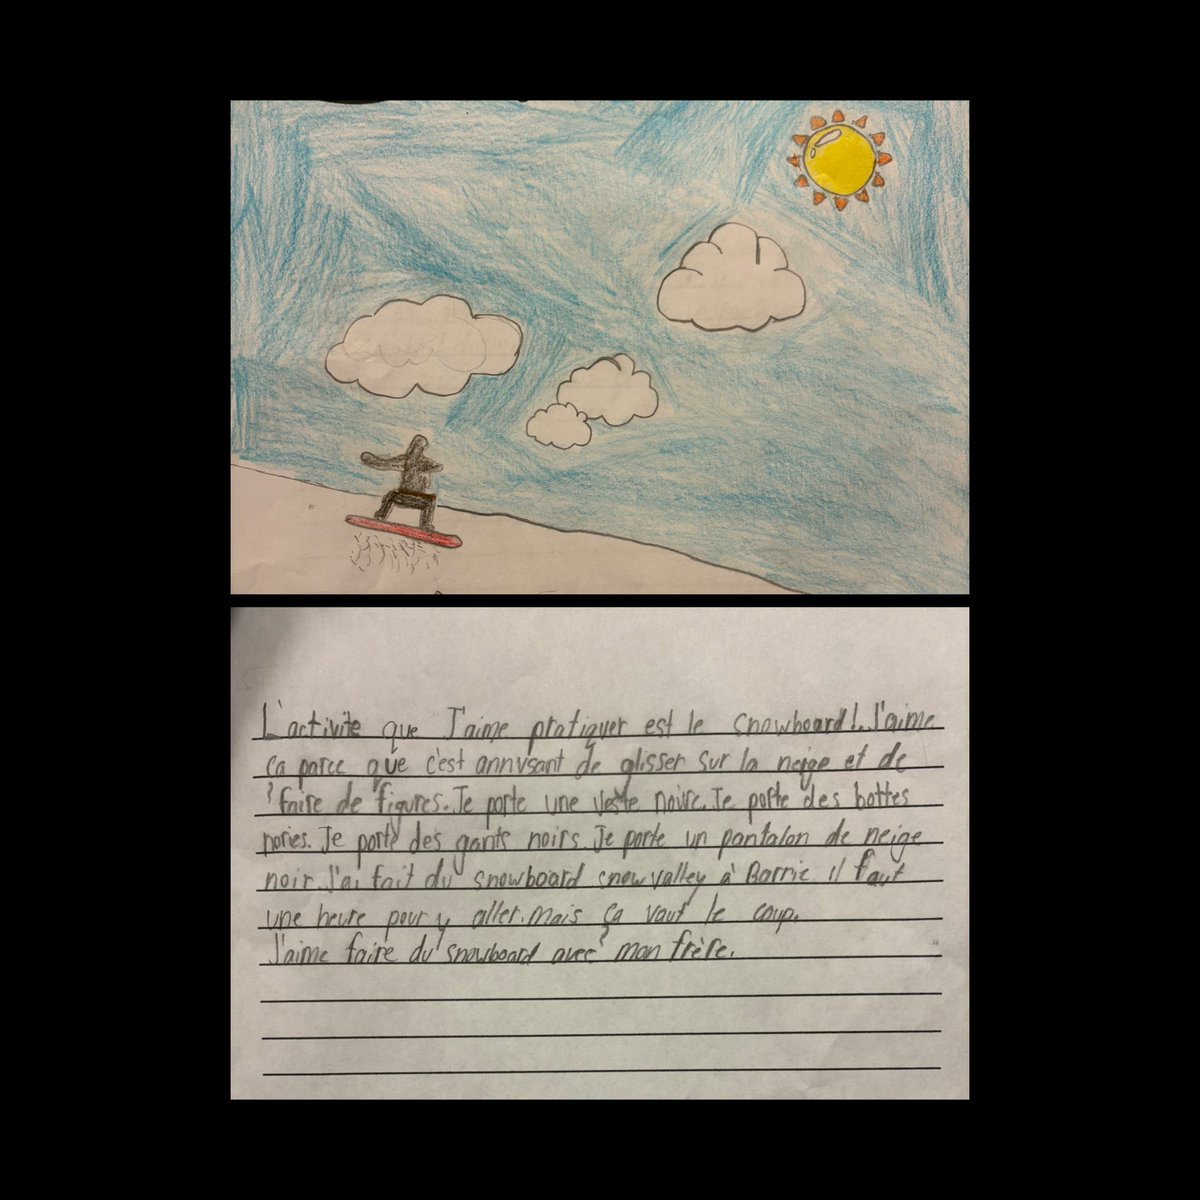 L'activite que J'aime pratiquer est le snowboard!. J'aime
ça parce que c'est annusant de glisser sur la neige et de
faire de figures. Je porte une veste noire. Je porte des bottes
nories. Je porte des gants noirs. Je porte un pantalon de neige
noir. J'ai fait du snowboard snow valley à Barrie il faut
une heure pour y aller. mais ça vaut le coup.
J'aime faire du snowboard avec mon frère.